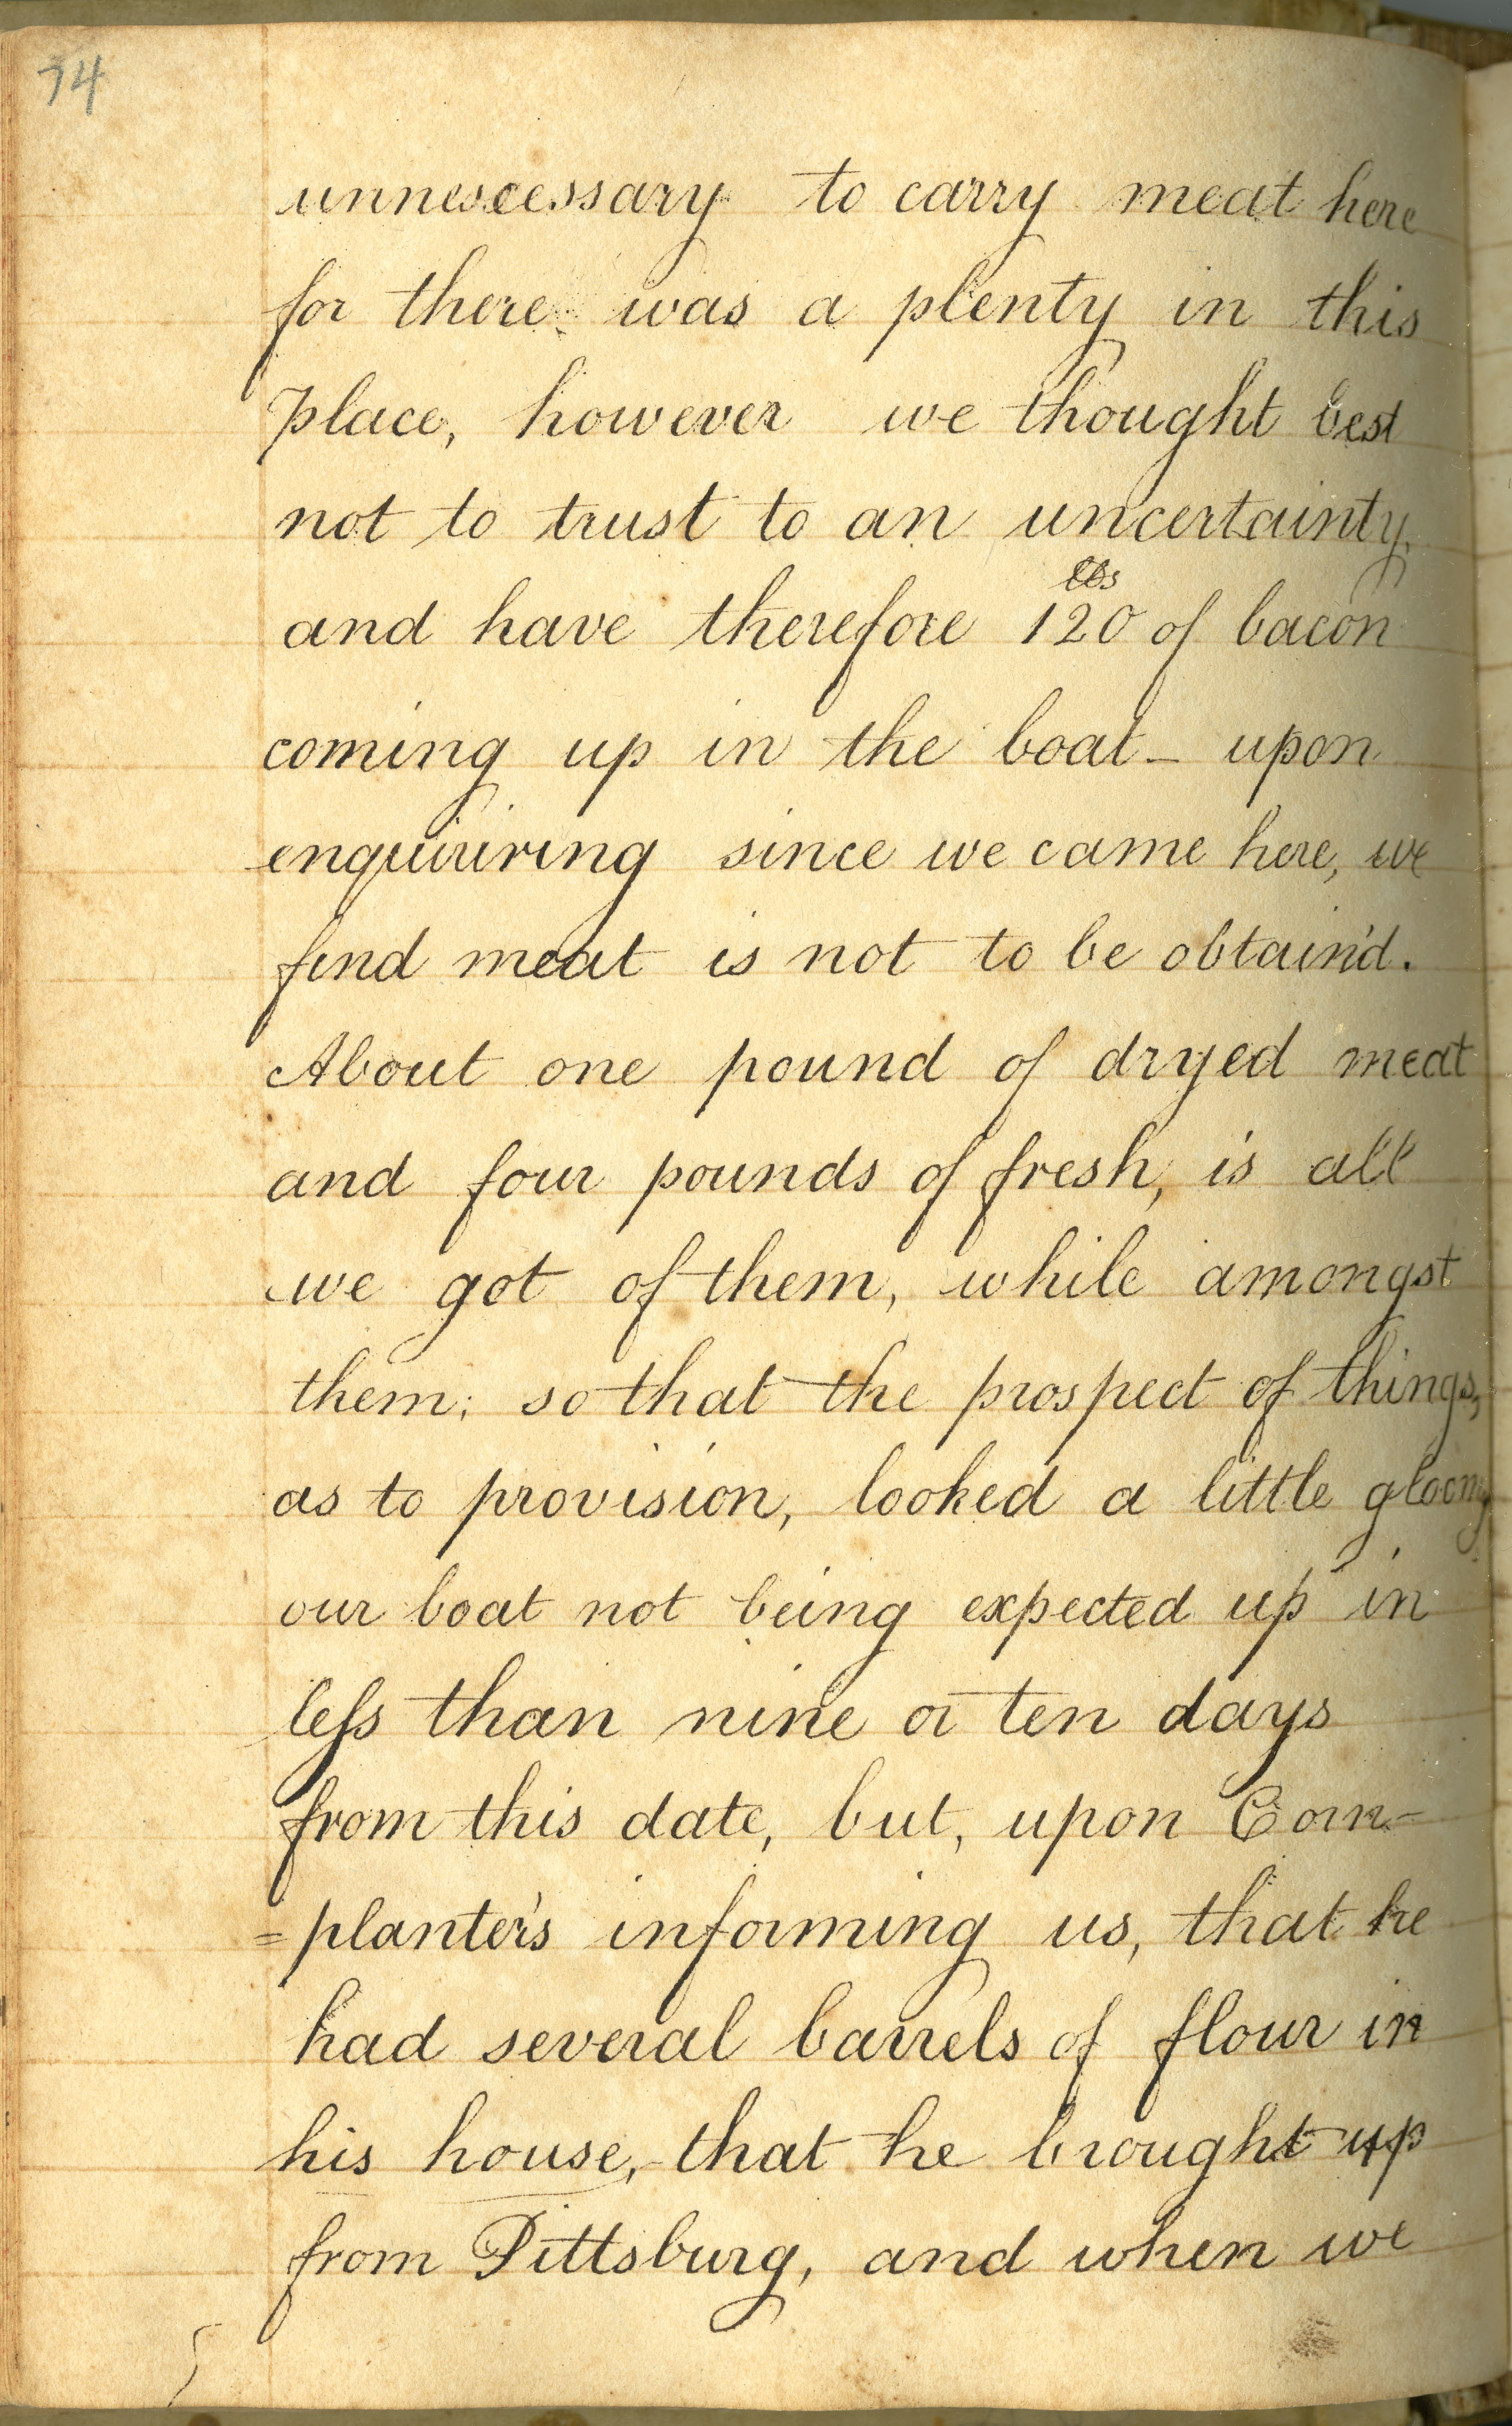 74
unnescessary to carry meat here
for there was a plenty in this
place, however we thought best
not to trust to an uncertainty,
lbs
and have therefore 120 of bacon
coming up in the boat – upon
enquiriring since we came here, we
find meat is not to be obtain'd.
About one pound of dryed meat
and four pounds of fresh, is all
we got of them, while amongst
them; so that the prospect of things,
as to provision, looked a little gloomy
our boat not being expected up in
less than nine or ten days
from this date, but, upon Corn-
=planter's informing us, that he
had several barrels of flour in
his house, that he brought up
from Pittsburg, and when we